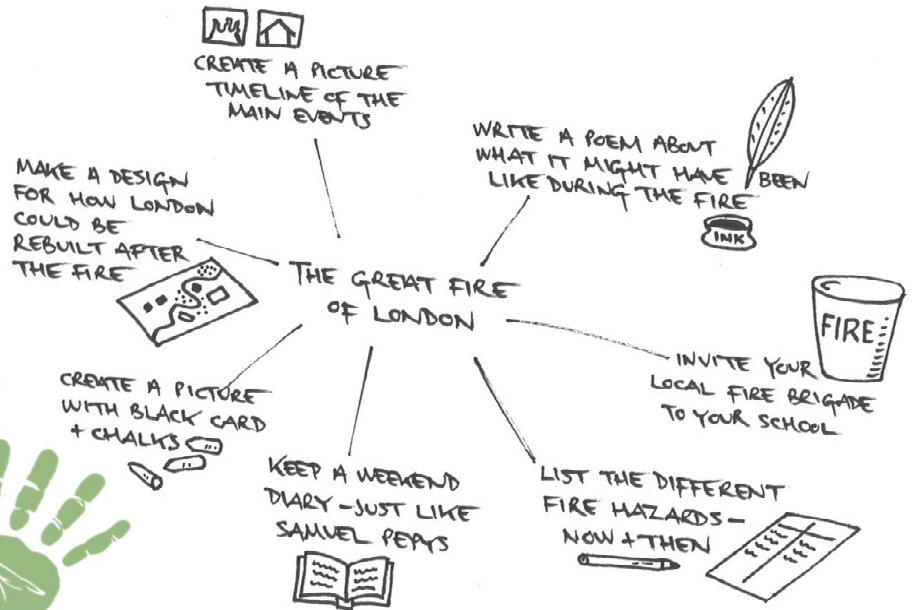 CREATE A PICTURE
TIMELINE OF THE
MAIN EVENTS
WRITE A POEM ABOUT
WHAT IT MIGHT HAVE BEEN
LIKE DURING THE FIRE
INK
MAKE A DESIGN
FOR HOW LONDON
COULD BE
REBUILT AFTER
THE FIRE
THE GREAT FIRE
OF LONDON
FIRE
INVITE YOUR
LOCAL FIRE BRIGADE
TO YOUR SCHOOL
CREATE A PICTURE
WITH BLACK CARD
+ CHALKS
KEEP A WEEKEND
DIARY - JUST LIKE
SAMUEL PEPYS
LIST THE DIFFERENT
FIRE HAZARDS -
NOW + THEN